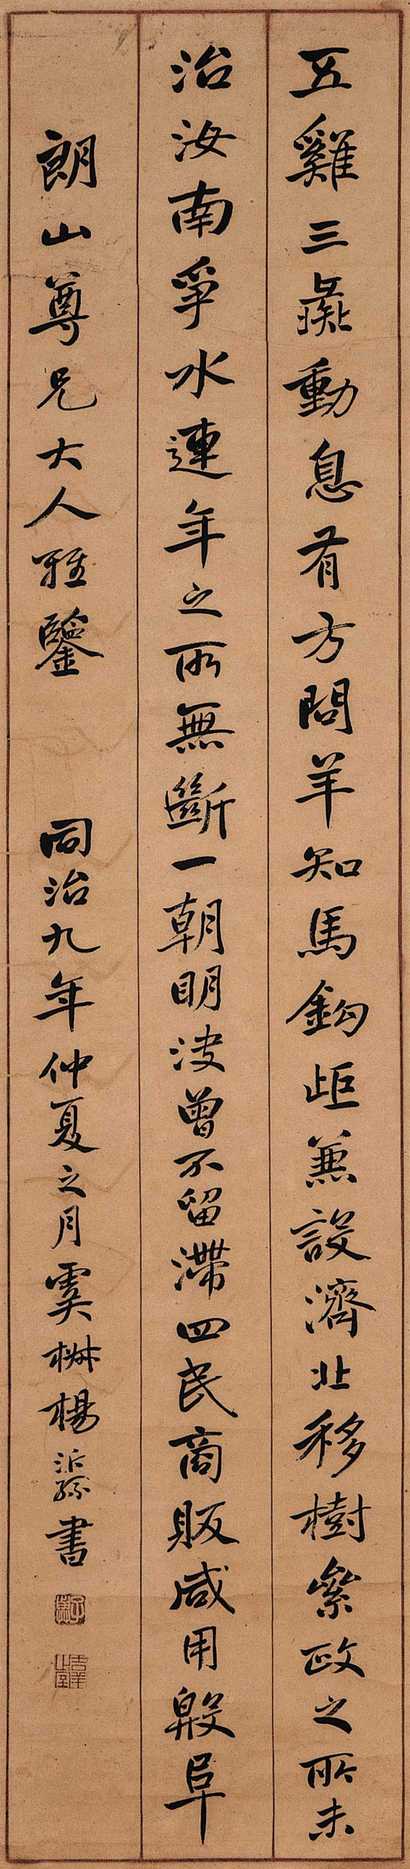 五雞三彘動息有方問羊知馬鉤距兼設濟北移樹累政之所未
治汝南爭水連年之所無斷一朝明決曾不留滯四民商販咸用殷阜
朗山尊兄大人雅鑒 同治九年仲夏之月虞楙楊沂孫書